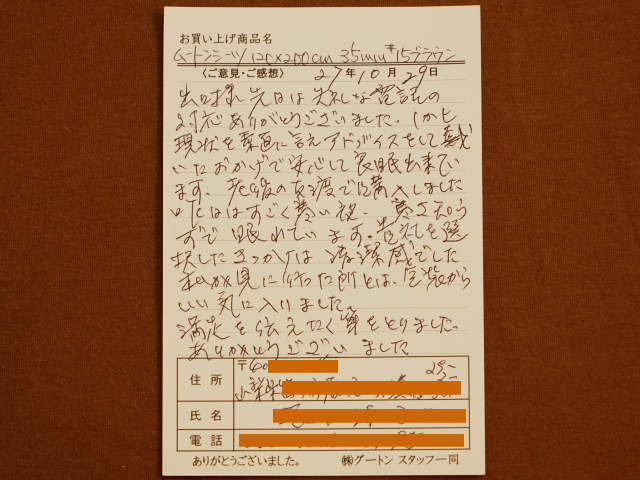 お買い上げ商品名
ムートンシーツ 120×200cm 35mm #15ブラウン
〈ご意見・ご感想〉 27年10月29日
出口様 先日は失礼な電話の
対応ありがとうございました。しかし
現状を素直に言えアドバイスをして戴
いたおかげで安心して良眠出来てい
ます。 で購入しました
はすごく 寒さ知ら
ずで眠れています。 を選
択したきっかけは 清潔感でした
私が見に行った所とは、 から
いい気に入りました。
満足を伝えたく筆をとりました。
ありがとうございました
〒40
住所
氏名
電話
ありがとうございました。 ㈱グートン スタッフ一同